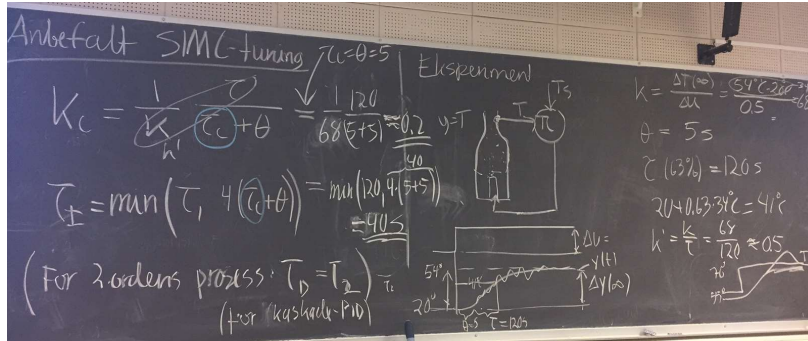 Anbefalt SIMC-tuning
τc=θ=5
Kc = 1/k τ/(τc+θ) = 1/68 120/(5+5) ≈ 0.2
k'
40
τI = min(τ, 4(τc+θ)) = min(120, 4·(5+5))
= 40s
(For 2. ordens prosess: τD = τ2)
(for kaskade-PID)
Eksperiment
Ts
y=T
T
TC
ΔU=
y(t)
Δy(∞)
54°
41°
20°
θ=5
τ=120s
k = ΔT(∞)/Δu = (54°C-20°
0.5
θ = 5s
τ(63%) = 120s
20+0.63·34°C = 41°C
k' = k/τ = 68/120 ≈ 0.5
70°
T